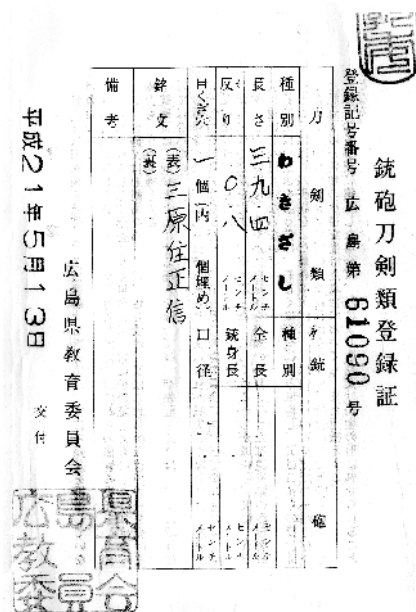 銃砲刀剣類登録証
登録記号番号 広島第 61090 号
刀剣類
銃砲
種別 わきざし 種別
長さ 三九四 センチメートル 全長 センチメートル
反り 〇八 センチメートル 銃身長 センチメートル
目くぎ穴 一個(内 個埋め) 口径 センチメートル
銘文 (表) 三原住正信
(裏)
備考
平成21年5月13日 交付
広島県教育委員会
広島県教育委員会